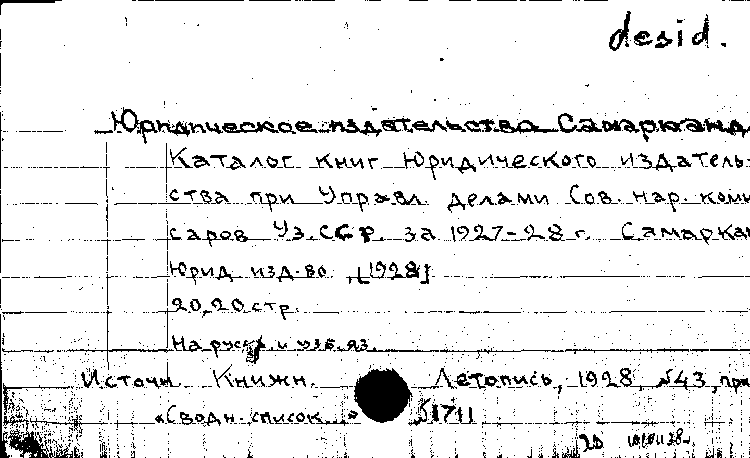 desid.
Юридическое издательство Самарканд
Каталог книг Юридического издатель-
ства при Управл. делами Сов. нар. коми
саров Уз.ССР. за 1927-28 г. Самаркан
Юрид. изд-во, [1928]
20,20 стр.
На русск. и узб. яз.
Источн. Книжн. Летопись, 1928, №43, при
«Сводн. список...» №1711
20